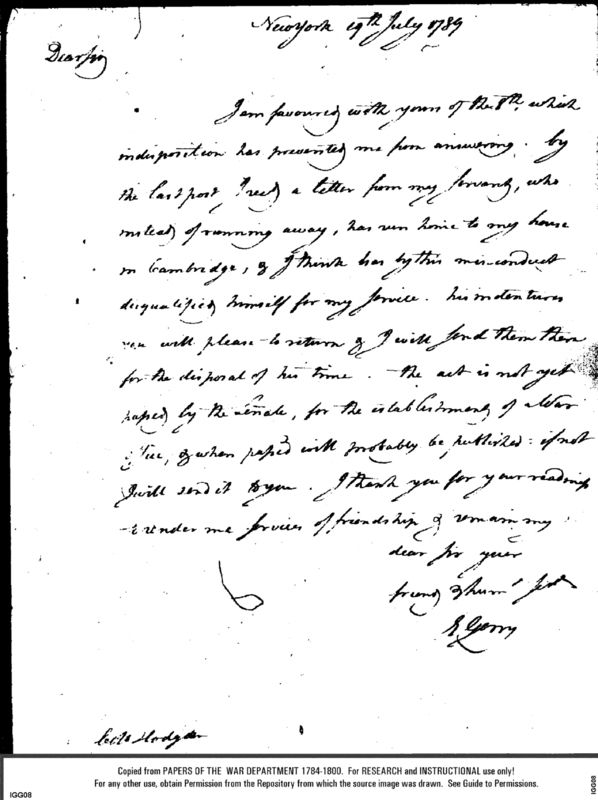 New York 19th July 1789
Dear sir
I am favoured with yours of the 8th, which
indisposition has prevented me from answering. by
the last post, I recd a letter from my servant, who
instead of running away, has run home to my house
in Cambridge, & I think has by this mis-conduct
disqualified himself for my service. his indentures
you will please to return & I will send them there
for the disposal of his time. the act is not yet
passed by the Senate, for the establishment of a War
office, & when passed will probably be published: if not
I will send it to you. I thank you for your readiness
to render me services of friendship & remain my
dear sir your
friend & hum
E Gerry
Hodgdon
Copied from PAPERS OF THE WAR DEPARTMENT 1784-1800. For RESEARCH and INSTRUCTIONAL use only!
For any other use, obtain Permission from the Repository from which the source image was drawn. See Guide to Permissions.
IGG08
IGG08